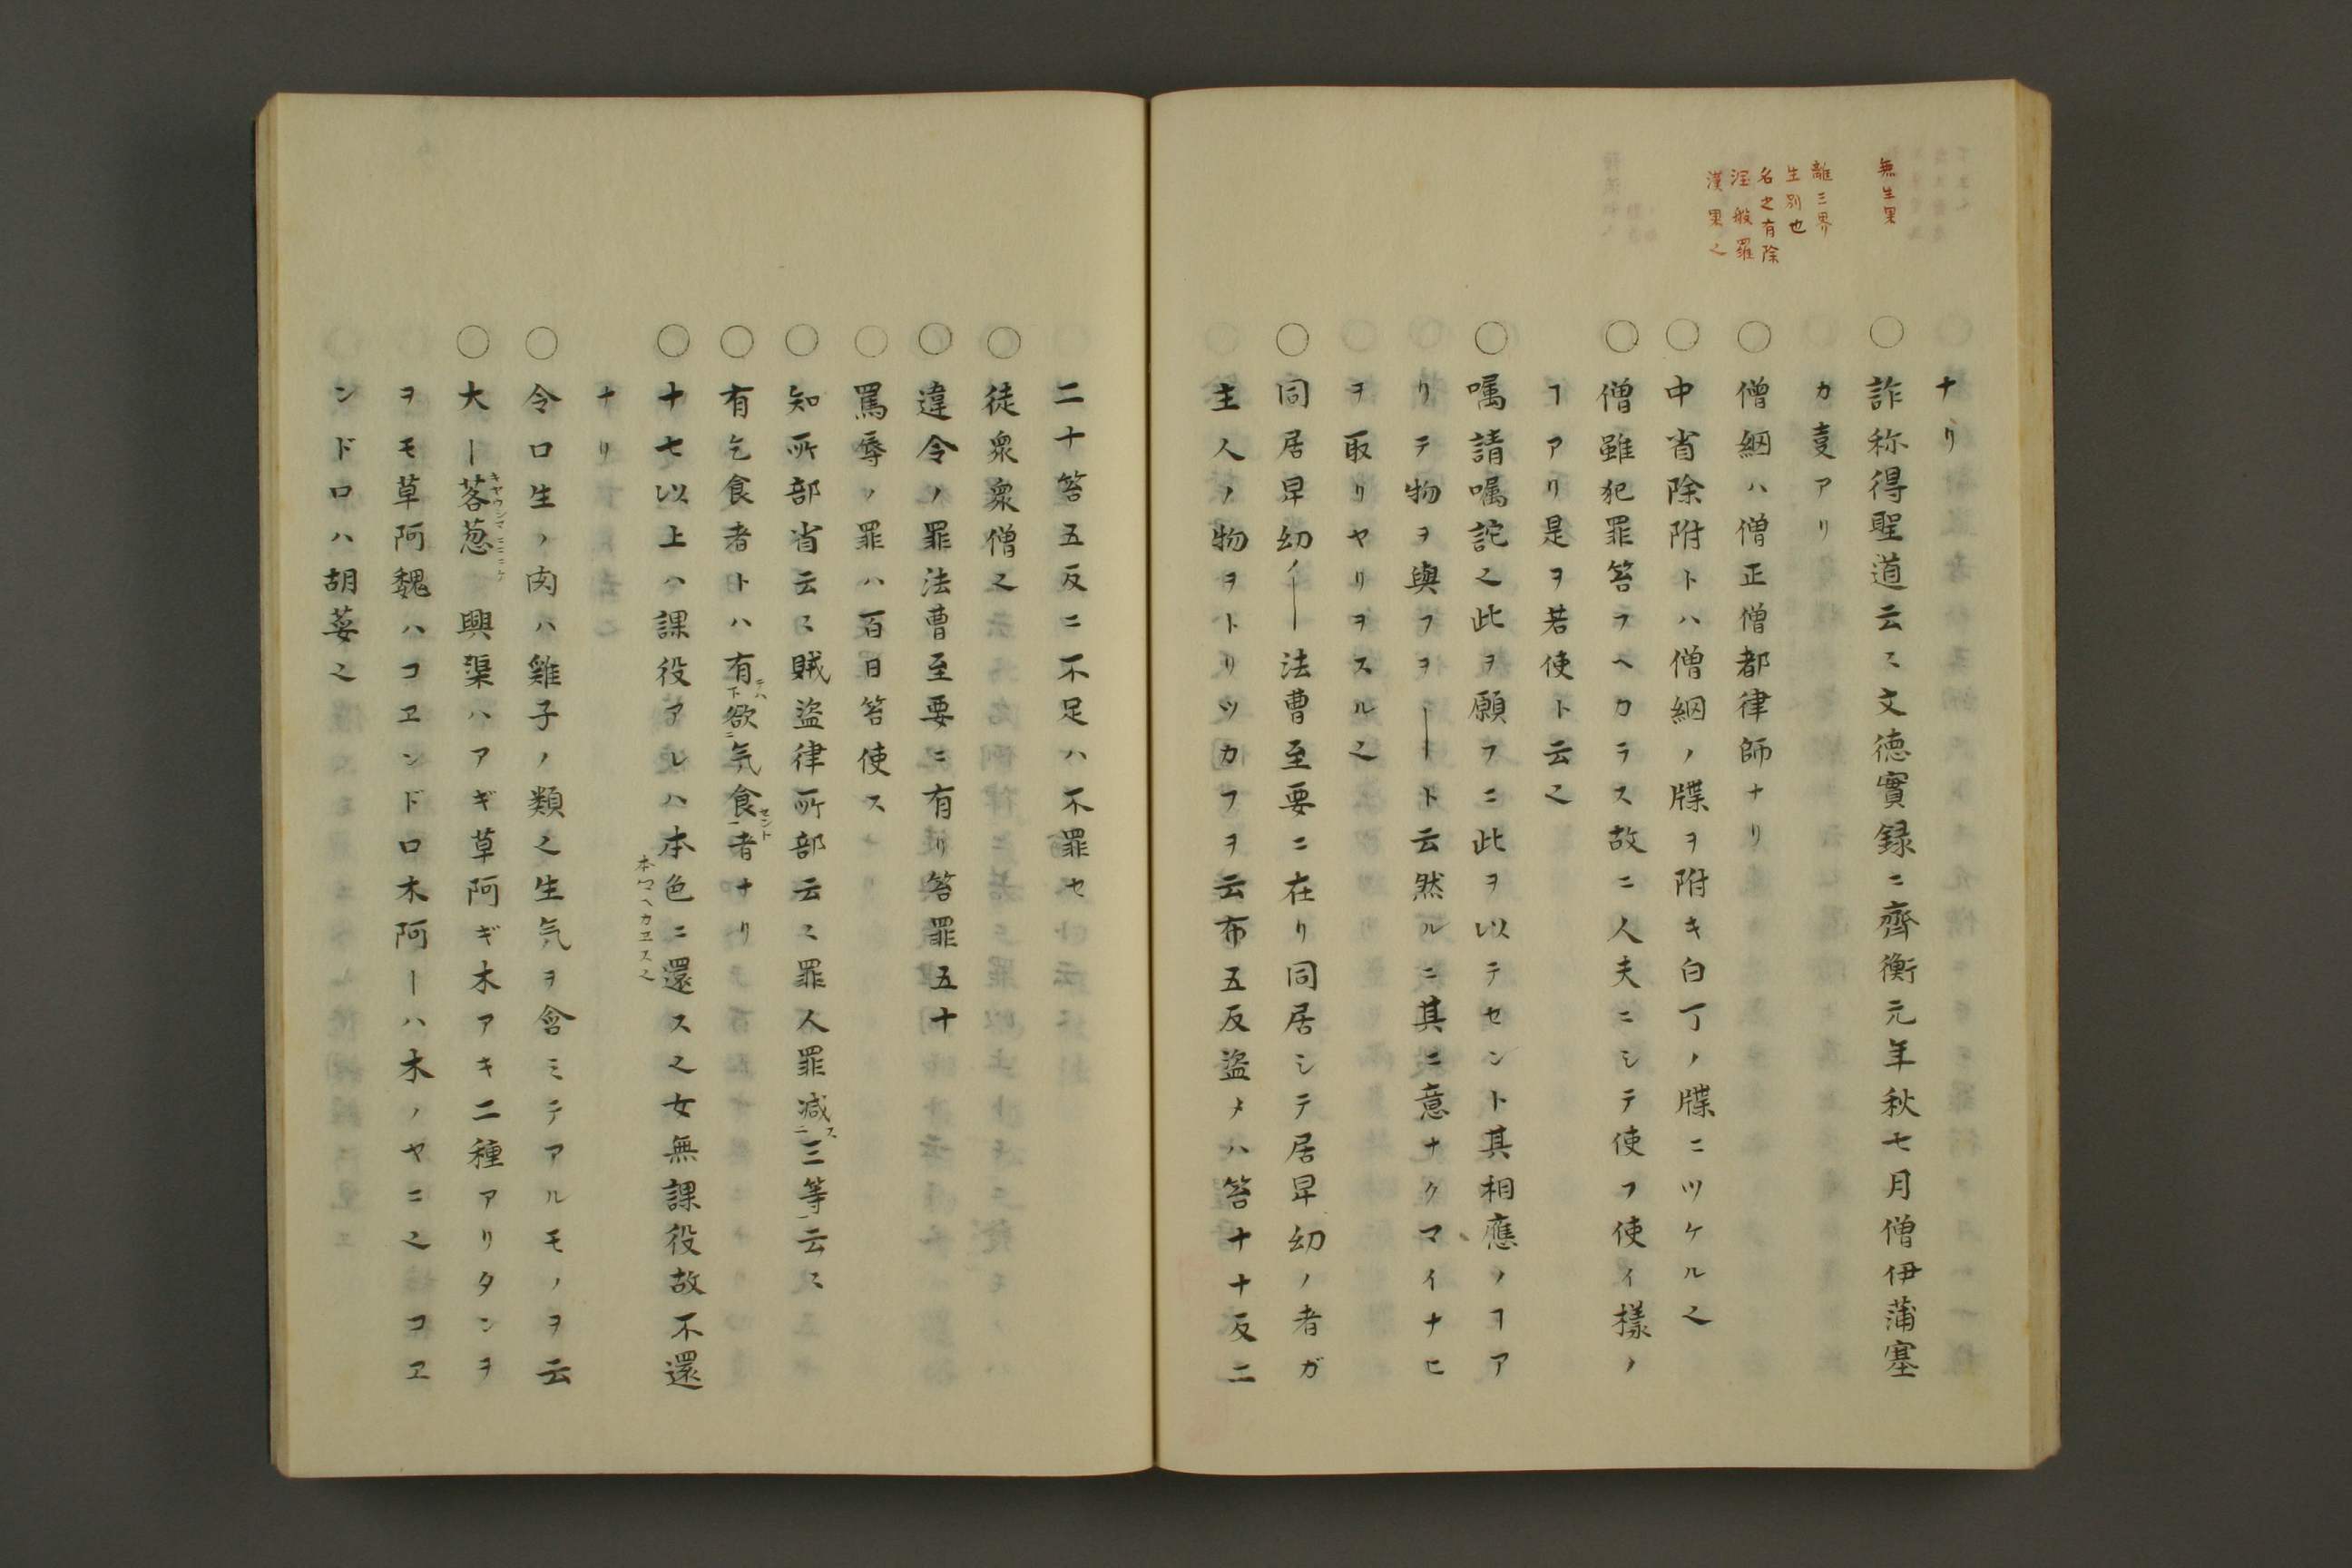 無生果
離三界
生別也
名之有除
涅般羅
漢果之
ナリ
○詐称得聖道云〻文徳實録ニ齊衡元年秋七月僧伊蒲塞
カ㕝アリ
○僧綱ハ僧正僧都律師ナリ
○中省除附トハ僧綱ノ牒ヲ附キ白丁ノ牒ニツケル之
○僧雖犯罪笞ラヘカラス故ニ人夫ニシテ使フ使イ様ノ
ヿアリ是ヲ若使ト云之
○嘱請嘱託之此ヲ願フニ此ヲ以テセント其相應ノヿア
リテ物ヲ與フヲ――ト云然ルニ其ニ意ナクマイナヒ
ヲ取リヤリヲスル之
○同居早幼ノ――法曹至要ニ在リ同居シテ居早幼ノ者ガ
主人ノ物ヲトリツカフヲ云布五反盗メハ笞十十反二
二十笞五反ニ不足ハ不罪セ
○徒衆衆僧之
○違令ノ罪法曹至要ニ有リ笞罪五十
○罵辱ノ罪ハ百日笞使ス
○知所部省云〻賊盗律所部云〻罪人罪減ス二三等一云〻
○有乞食者トハ有テハ下欲ニ気食セント一者ナリ
○十七以上ハ課役アレハ本色ニ還ス之女無課役故不還
本ロヘカヱス之
ナリ
○令ロ生ノ肉ハ雞子ノ類之生気ヲ含ミテアルモノヲ云
○大―茖葱 興渠ハアギ草阿ギ木アキ二種アリタンヲ
ヲモ草阿魏ハコヱンドロ木阿―ハ木ノヤニ之コヱ
ンドロハ胡荽之